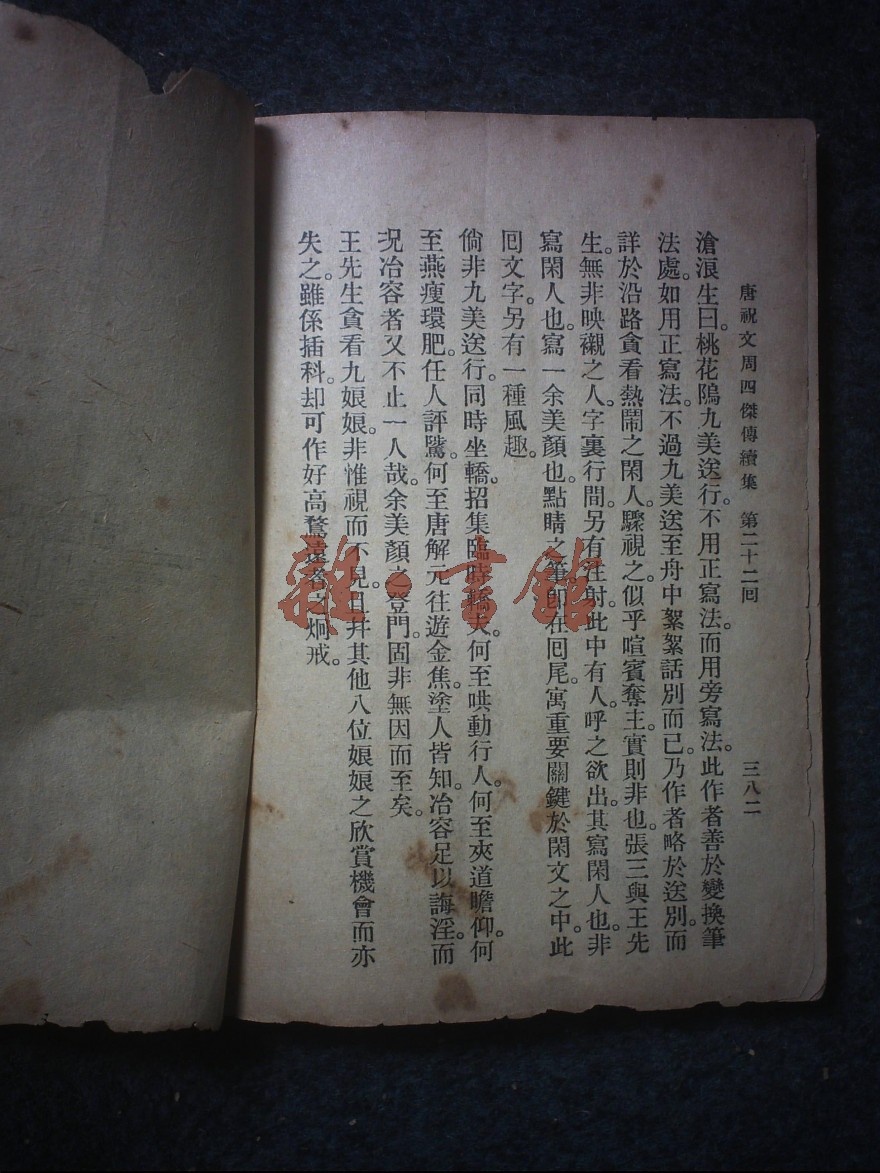 唐祝文周四傑傳續集 第二十二回 三八二
滄浪生曰。桃花隖九美送行。不用正寫法。而用旁寫法。此作者善於變換筆
法處。如用正寫法。不過九美送至舟中絮絮話別而已。乃作者略於送別。而
詳於沿路貪看熱鬧之閑人。驟視之。似乎喧賓奪主。實則非也。張三與王先
生。無非映襯之人。字裏行間。另有注射。此中有人。呼之欲出。其寫閑人也。非
寫閑人也。寫一余美顏也。點睛之筆。卽在囘尾。寓重要關鍵於閑文之中。此
囘文字。另有一種風趣。
倘非九美送行。同時坐轎。招集臨時轎夫。何至哄動行人。何至夾道瞻仰。何
至燕瘦環肥。任人評騭。何至唐解元往遊金焦。塗人皆知。冶容足以誨淫。而
况冶容者又不止一人哉。余美顏之登門。固非無因而至矣。
王先生貪看九娘娘。非惟視而不見。且幷其他八位娘娘之欣賞機會而亦
失之。雖係插科。却可作好高騖遠者之炯戒。
雜·書館